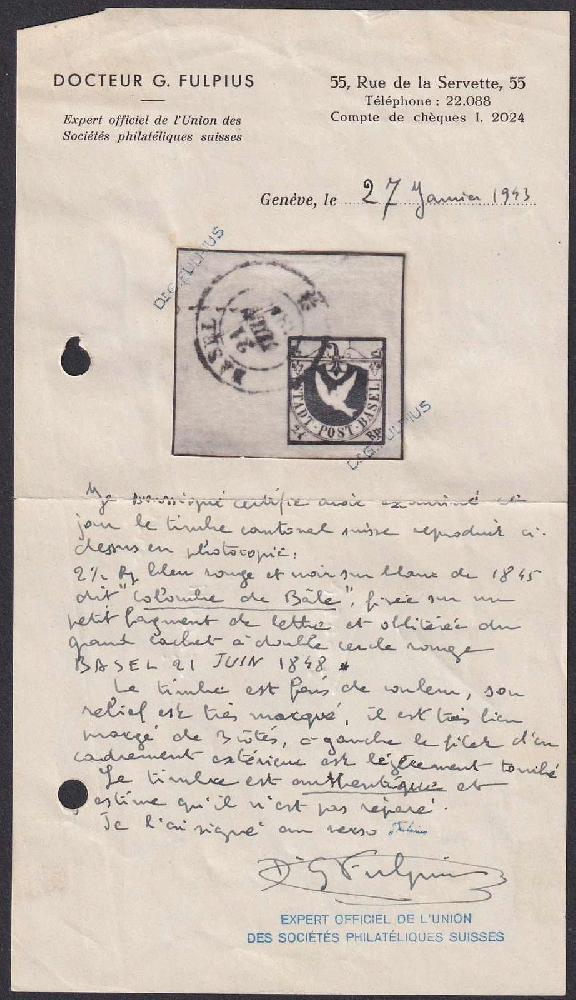 DOCTEUR G. FULPIUS
Expert officiel de l'Union des
Sociétés philatéliques suisses
55, Rue de la Servette, 55
Téléphone : 22.088
Compte de chèques I. 2024
Genève, le 27 Janvier 1943
Dr G. FULPIUS
BASEL
21
JUIN
STADT-POST-BASEL
2½ Rp.
Dr G. FULPIUS
Je soussigné certifie avoir examiné ce
jour le timbre cantonal suisse reproduit ci-
dessus en photocopie:
2½ Rp bleu rouge et noir sur blanc de 1845
dit "Colombe de Bâle", fixée sur un
petit fragment de lettre et oblitérée du
grand cachet à double cercle rouge
BASEL 21 JUIN 1848 *
Le timbre est frais de couleur, son
relief est très marqué, il est très bien
margé de 3 côtés, à gauche le filet d'en
cadrement extérieur est légèrement touché
Le timbre est authentique et
j'estime qu'il n'est pas réparé.
Je l'ai signé au verso
Dr G Fulpius
EXPERT OFFICIEL DE L'UNION
DES SOCIÉTÉS PHILATÉLIQUES SUISSES